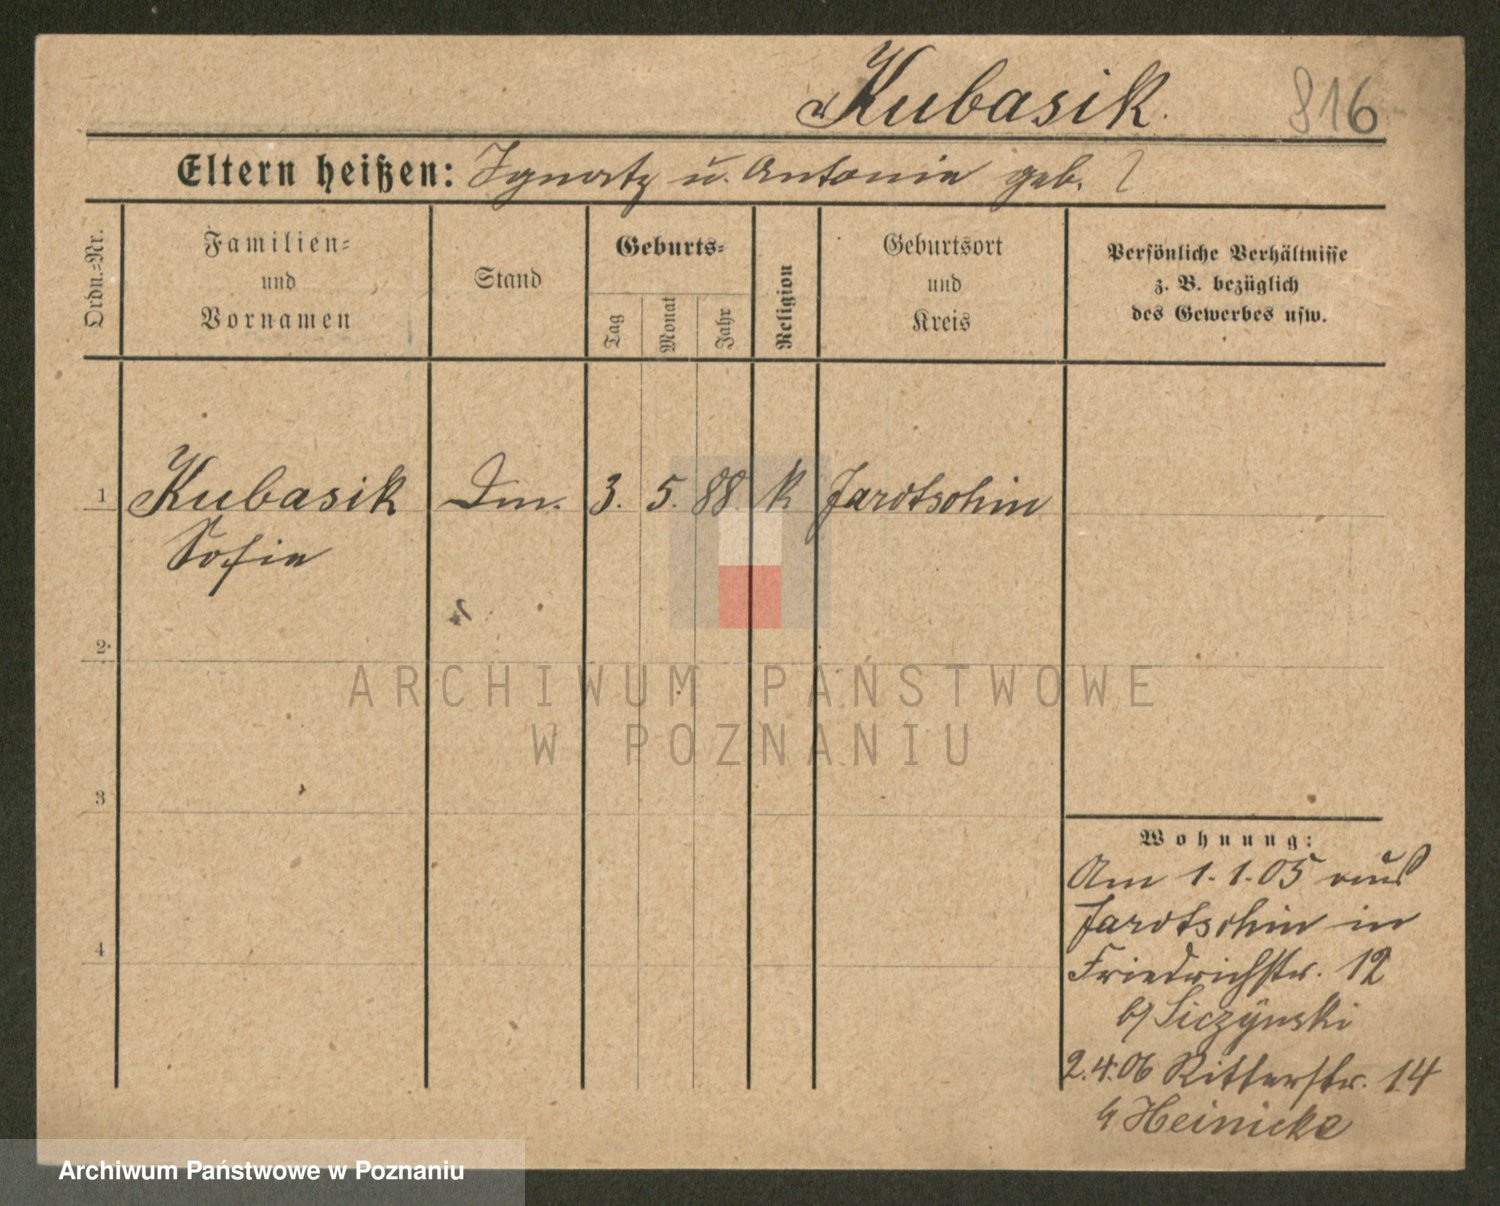 Kubasik. 816
Eltern heißen: Ignatz u. Antonia geb. ?
Ordn.-Nr.
Familien-
und
Vornamen
Stand
Geburts-
Tag
Monat
Jahr
Religion
Geburtsort
und
Kreis
Persönliche Verhältnisse
z. B. bezüglich
des Gewerbes usw.
1 Kubasik 3. 5. 88 k Jarotschin
Sofia
2
3
4
Wohnung:
Am 1.1.05 aus
Jarotschin in
Friedrichstr. 12
b/ Siczynski
2.4.06 Ritterstr. 14
b/ Heinicke
ARCHIWUM PAŃSTWOWE
W POZNANIU
Archiwum Państwowe w Poznaniu